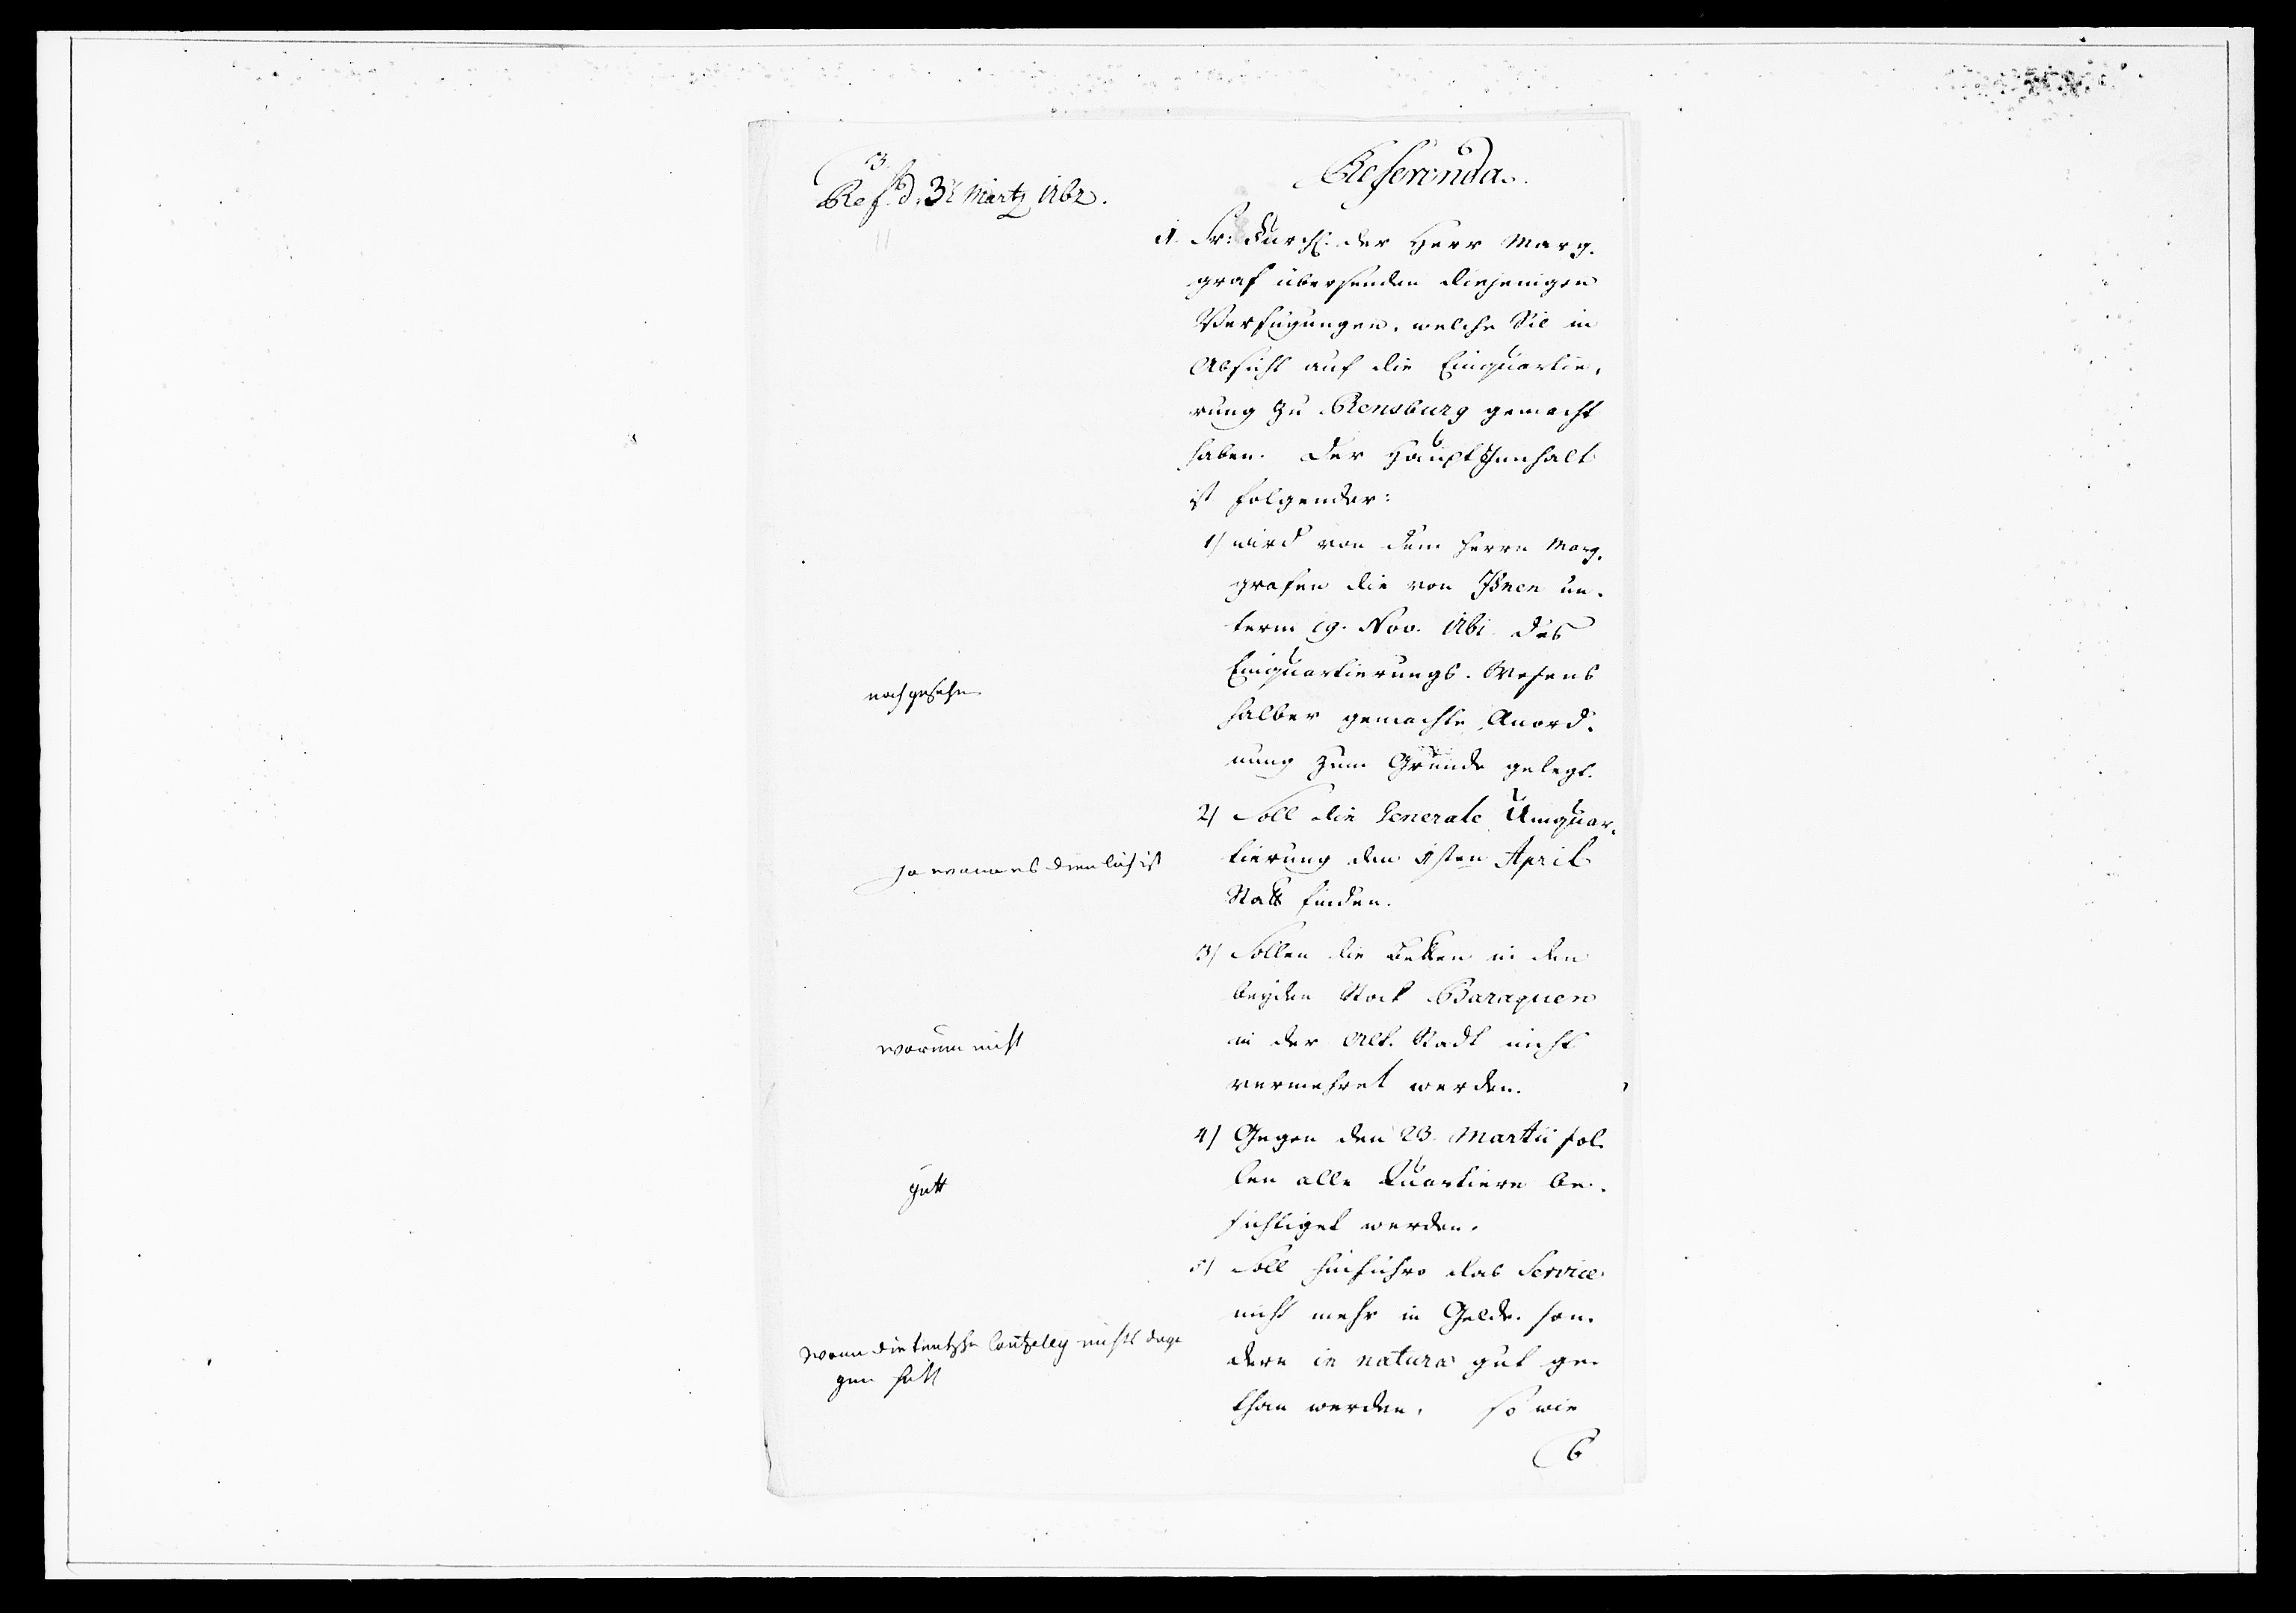 3.
Ref. d. 3t Martz 1762.
Referenda.
1. Sr: Durchl. der Herr Marg-
graf übersenden diejenigen
Verfügungen, welche Sie in
Absicht auf die Einquartie-
rung zu Rensburg gemacht
haben. Der Haupt Innhalt
ist folgender:
1) wird von dem Herrn Marg-
grafen die von Ihnen un-
term 19. Nov. 1761 des
Einquartierungs-Wesens
halber gemachte Anord-
nung zum Grunde gelegt.
nachgesehn
2) Soll die Generale Umquar-
tierung den 1sten April
Statt finden.
ja wann es dienlich ist
3) Sollen die Betten in den
beyden Stock Baraquen
in der Alt-Stadt nicht
vermehret werden.
worum nicht
4) Gegen den 23. Martii sol-
len alle Quartiere be-
sichtiget werden.
gutt
5) Soll hinführo das Service
nicht mehr in Gelde, son-
dern in natura gut ge-
than werden. so wie
wann die teutzsche Cantzeley nichts dage
gen hatt
6